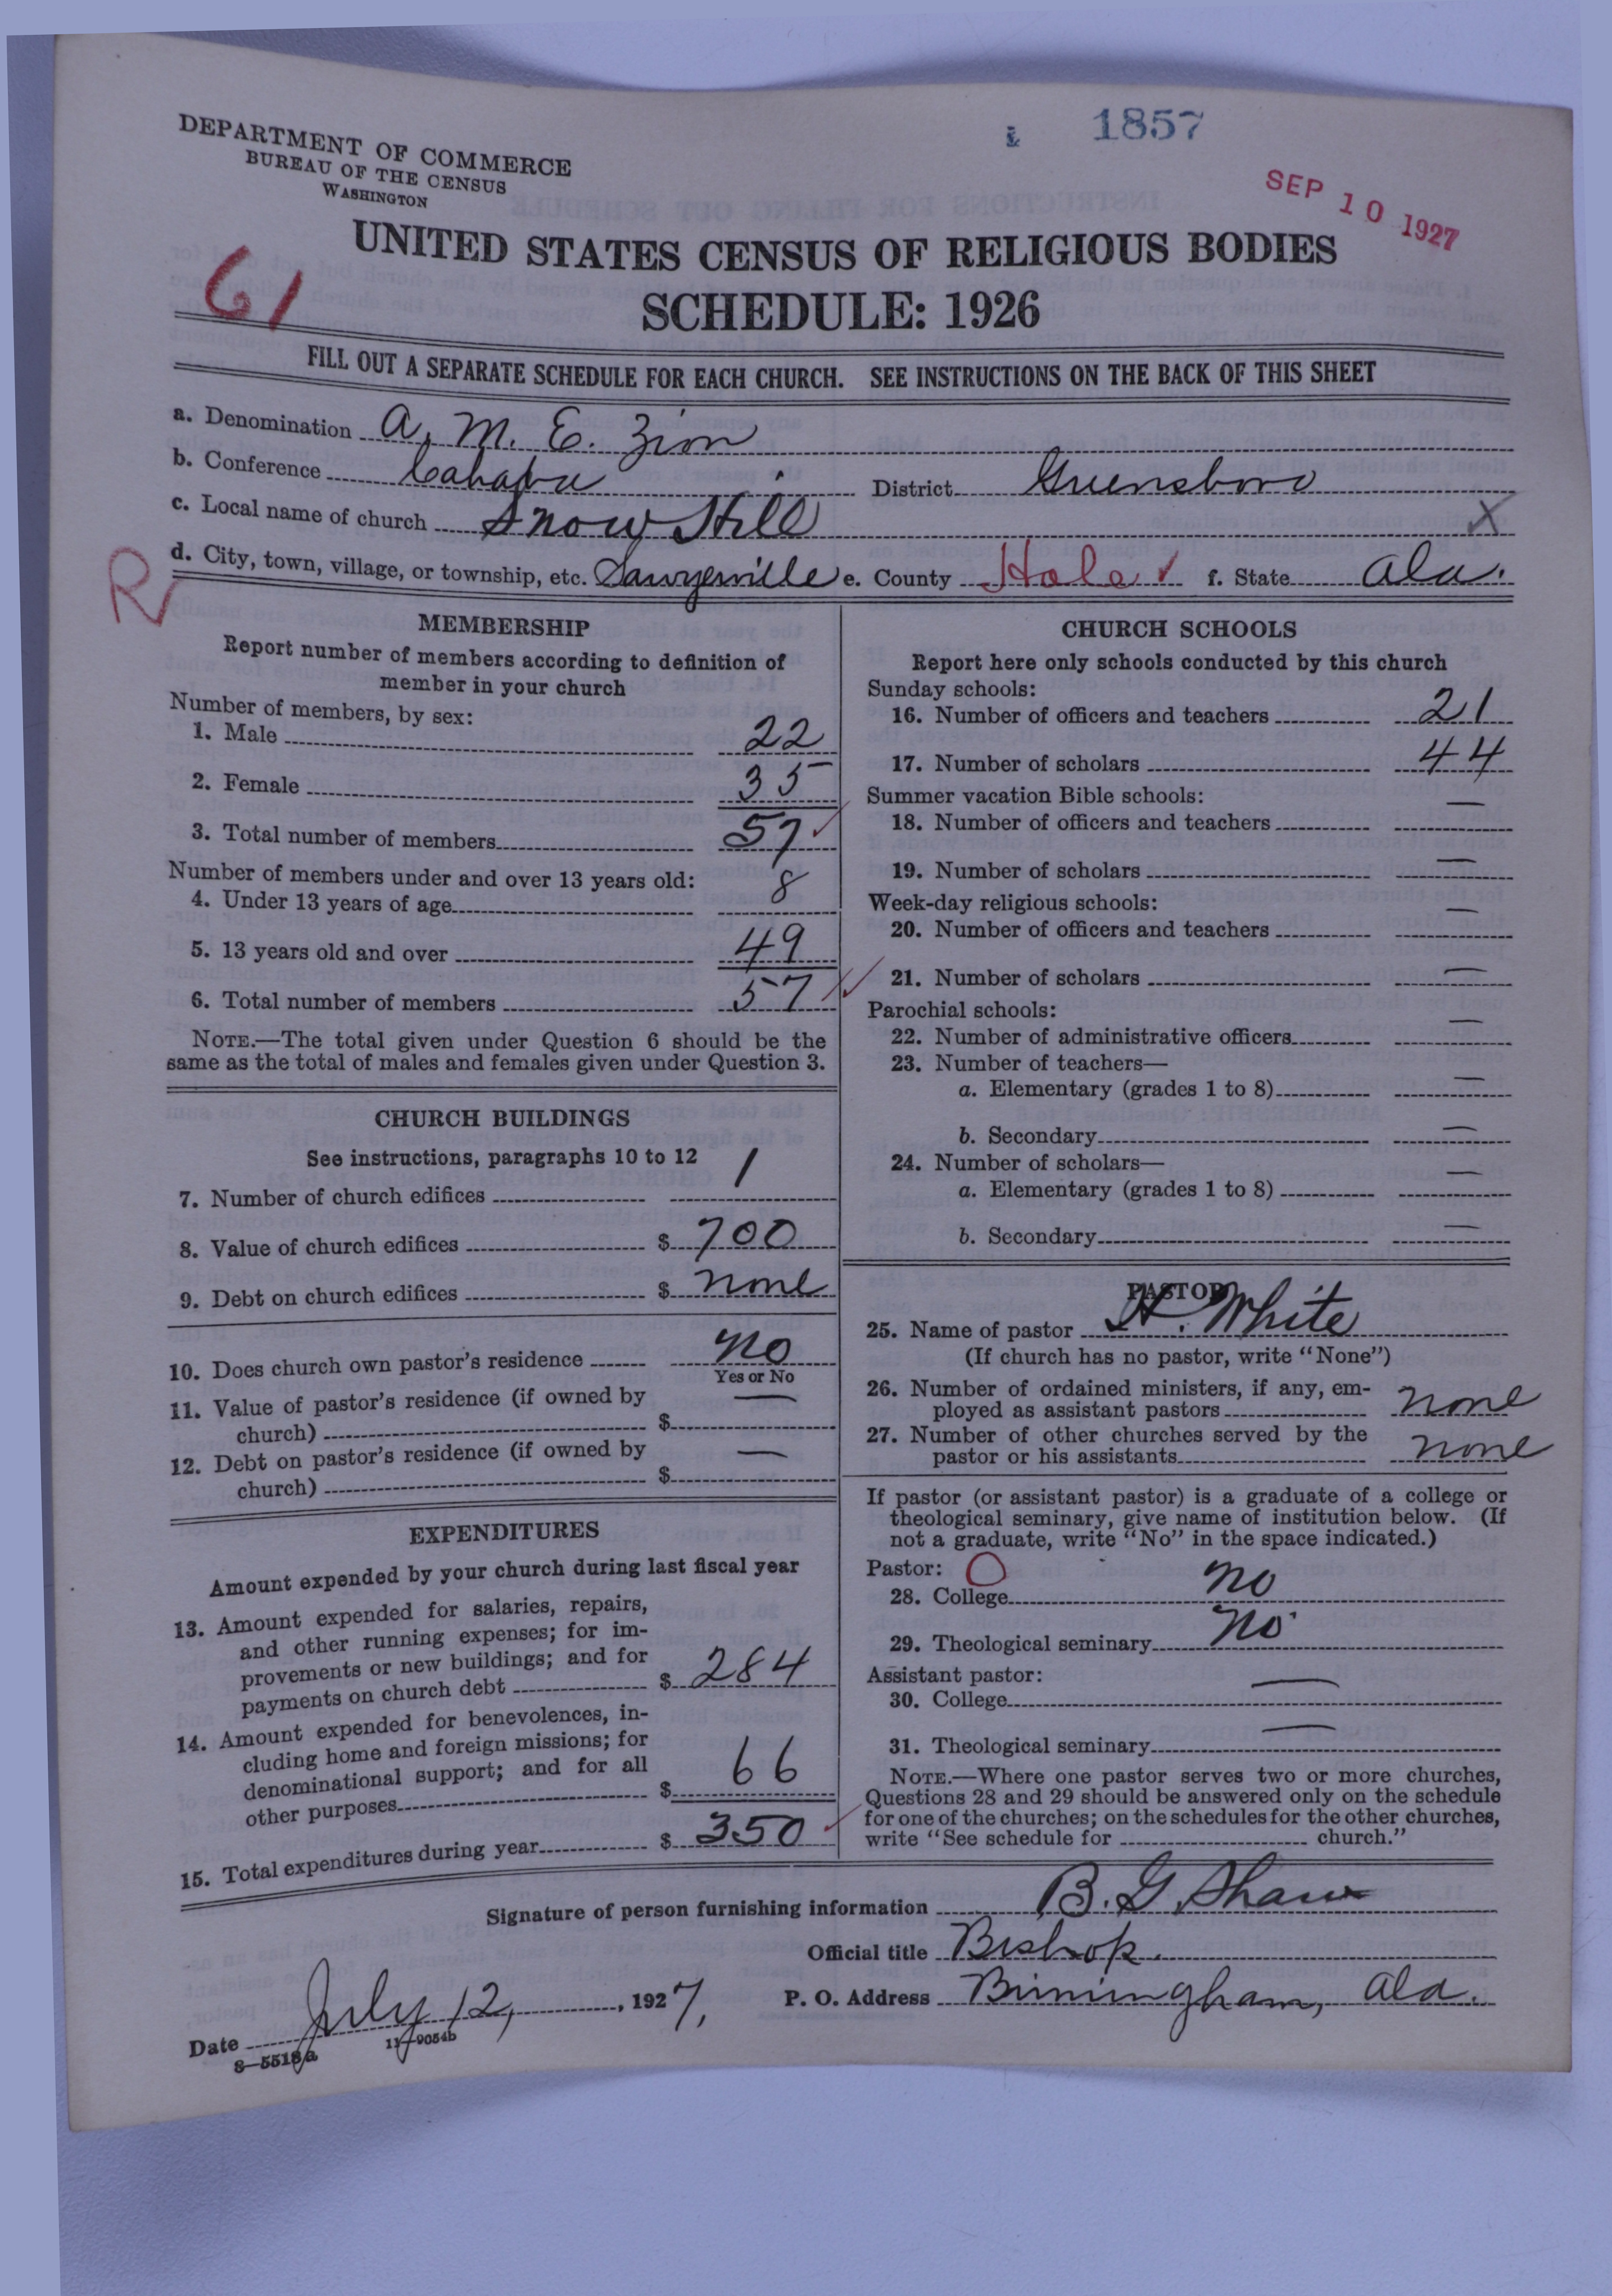 1857
DEPARTMENT OF COMMERCE
BUREAU OF THE CENSUS
WASHINGTON
SEP 10 1927
UNITED STATES CENSUS OF RELIGIOUS BODIES
61
SCHEDULE: 1926
FILL OUT A SEPARATE SCHEDULE FOR EACH CHURCH. SEE INSTRUCTIONS ON THE BACK OF THIS SHEET
a. Denomination A. M. E. Zion
b. Conference Cahaba District Greensboro
c. Local name of church Snow Hill X
R d. City, town, village, or township, etc. Sawyerville e. County Hale ✓ f. State Ala.
MEMBERSHIP
Report number of members according to definition of
member in your church
Number of members, by sex:
1. Male 22
2. Female 35
3. Total number of members 57 ✓
Number of members under and over 13 years old:
4. Under 13 years of age 8
5. 13 years old and over 49
6. Total number of members 57 ✓
NOTE.—The total given under Question 6 should be the
same as the total of males and females given under Question 3.
CHURCH BUILDINGS
See instructions, paragraphs 10 to 12
7. Number of church edifices 1
8. Value of church edifices $ 700
9. Debt on church edifices $ none
10. Does church own pastor's residence No
Yes or No
11. Value of pastor's residence (if owned by
church) $ —
12. Debt on pastor's residence (if owned by
church) $ —
EXPENDITURES
Amount expended by your church during last fiscal year
13. Amount expended for salaries, repairs,
and other running expenses; for im-
provements or new buildings; and for
payments on church debt $ 284
14. Amount expended for benevolences, in-
cluding home and foreign missions; for
denominational support; and for all
other purposes $ 66
15. Total expenditures during year $ 350 ✓
CHURCH SCHOOLS
Report here only schools conducted by this church
Sunday schools:
16. Number of officers and teachers 21
17. Number of scholars 44
Summer vacation Bible schools:
18. Number of officers and teachers —
19. Number of scholars —
Week-day religious schools:
20. Number of officers and teachers —
21. Number of scholars —
Parochial schools:
22. Number of administrative officers —
23. Number of teachers—
a. Elementary (grades 1 to 8) —
b. Secondary —
24. Number of scholars—
a. Elementary (grades 1 to 8) —
b. Secondary —
PASTOR
25. Name of pastor H. White
(If church has no pastor, write "None")
26. Number of ordained ministers, if any, em-
ployed as assistant pastors none
27. Number of other churches served by the
pastor or his assistants none
If pastor (or assistant pastor) is a graduate of a college or
theological seminary, give name of institution below. (If
not a graduate, write "No" in the space indicated.)
Pastor: O
28. College no
29. Theological seminary no
Assistant pastor:
30. College —
31. Theological seminary —
NOTE.—Where one pastor serves two or more churches,
Questions 28 and 29 should be answered only on the schedule
for one of the churches; on the schedules for the other churches,
write "See schedule for church."
Signature of person furnishing information B. G. Shaw
Official title Bishop.
Date July 12, 1927, P. O. Address Birmingham, Ala.
8—5518a 11—9054b